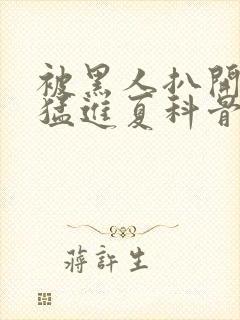 被黑人扒開
猛進夏科骨
蔣許生